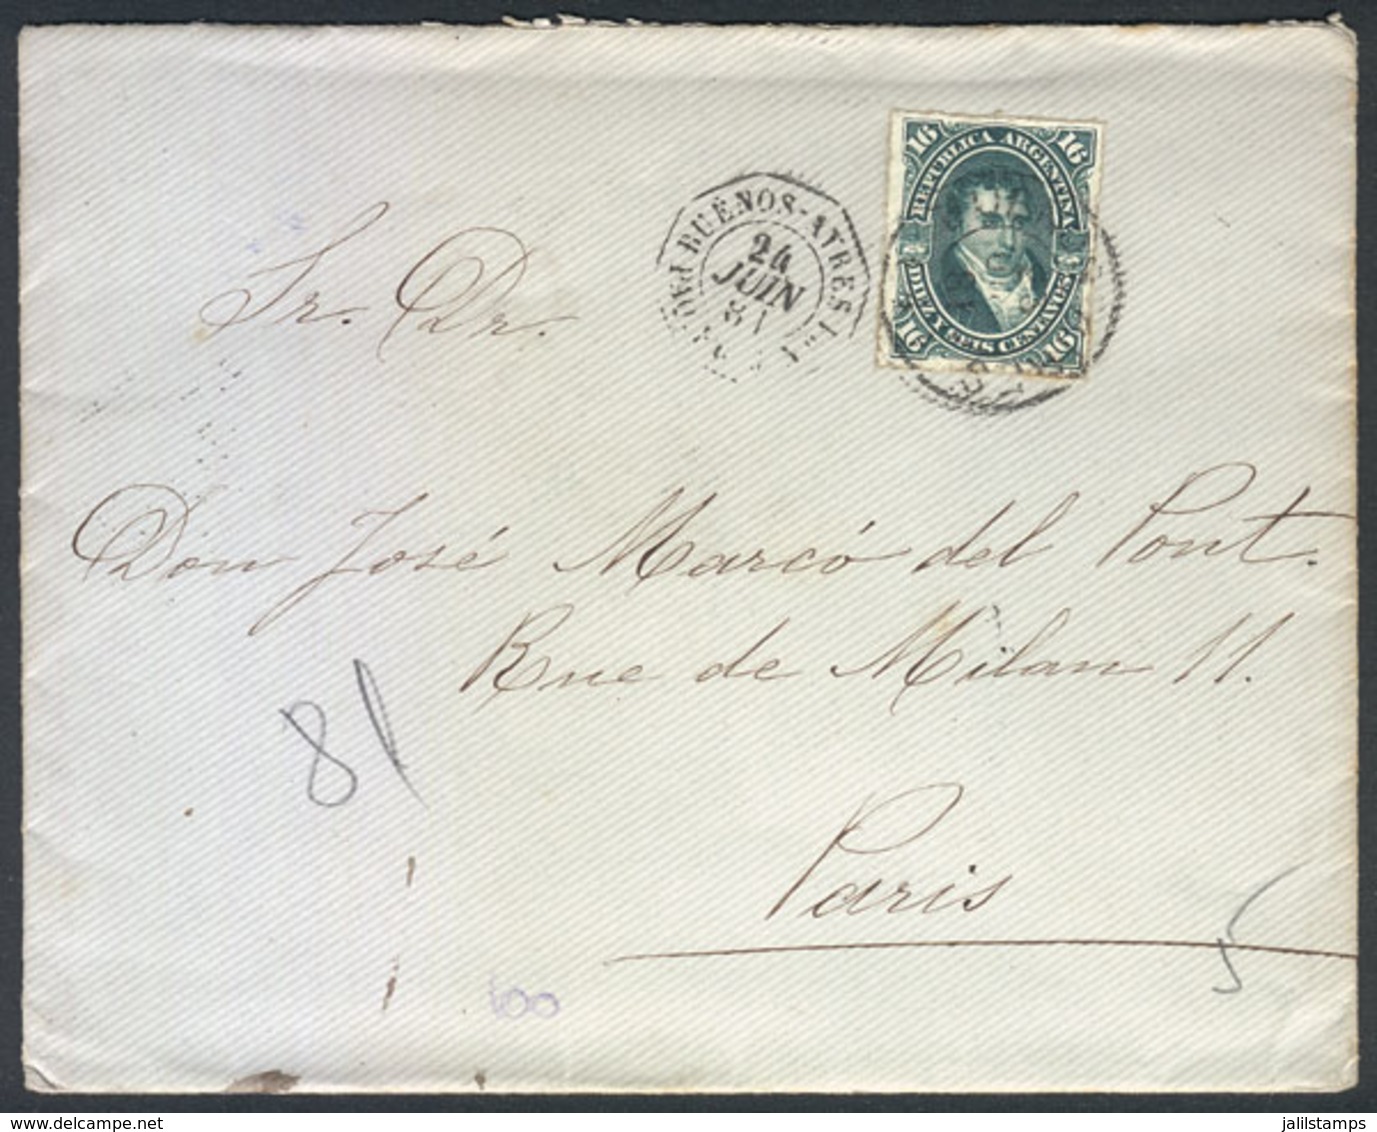 16 REPUBLICA ARGENTINA 16
DIEZ Y SEIS CENTAVOS
16 16
BUENOS-AYRES
24
JUIN
81
PAQ.
Sr. Dr.
Don José Marcó del Pont.
Rue de Milan 11.
81
Paris
5
100
delcampe.net
jalilstamps